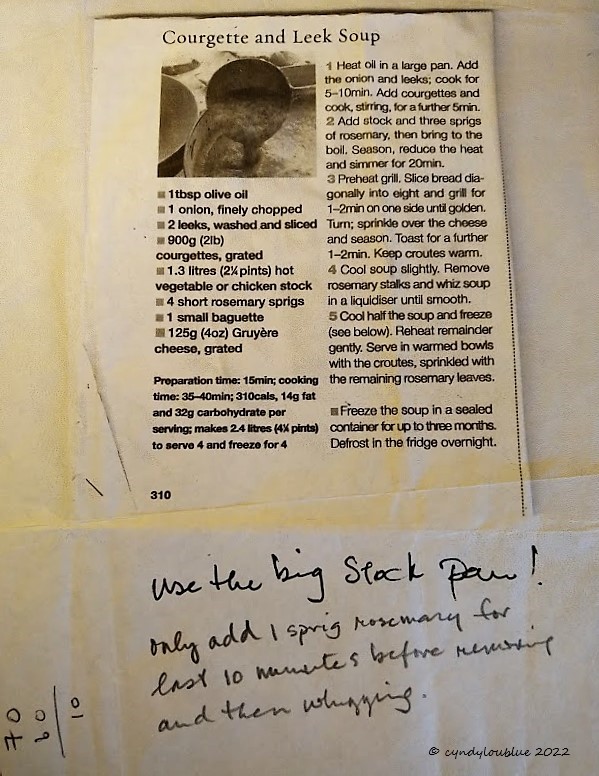 Courgette and Leek Soup
1tbsp olive oil
1 onion, finely chopped
2 leeks, washed and sliced
900g (2lb)
courgettes, grated
1.3 litres (2¼ pints) hot
vegetable or chicken stock
4 short rosemary sprigs
1 small baguette
125g (4oz) Gruyère
cheese, grated
Preparation time: 15min; cooking
time: 35–40min; 310cals, 14g fat
and 32g carbohydrate per
serving; makes 2.4 litres (4¼ pints)
to serve 4 and freeze for 4
310
1 Heat oil in a large pan. Add
the onion and leeks; cook for
5–10min. Add courgettes and
cook, stirring, for a further 5min.
2 Add stock and three sprigs
of rosemary, then bring to the
boil. Season, reduce the heat
and simmer for 20min.
3 Preheat grill. Slice bread dia-
gonally into eight and grill for
1–2min on one side until golden.
Turn; sprinkle over the cheese
and season. Toast for a further
1–2min. Keep croutes warm.
4 Cool soup slightly. Remove
rosemary stalks and whiz soup
in a liquidiser until smooth.
5 Cool half the soup and freeze
(see below). Reheat remainder
gently. Serve in warmed bowls
with the croutes, sprinkled with
the remaining rosemary leaves.
Freeze the soup in a sealed
container for up to three months.
Defrost in the fridge overnight.
Use the big Stock pan!
only add 1 sprig rosemary for
last 10 minutes before removing
and then whizzing.
70
60
10
© cyndyloublue 2022